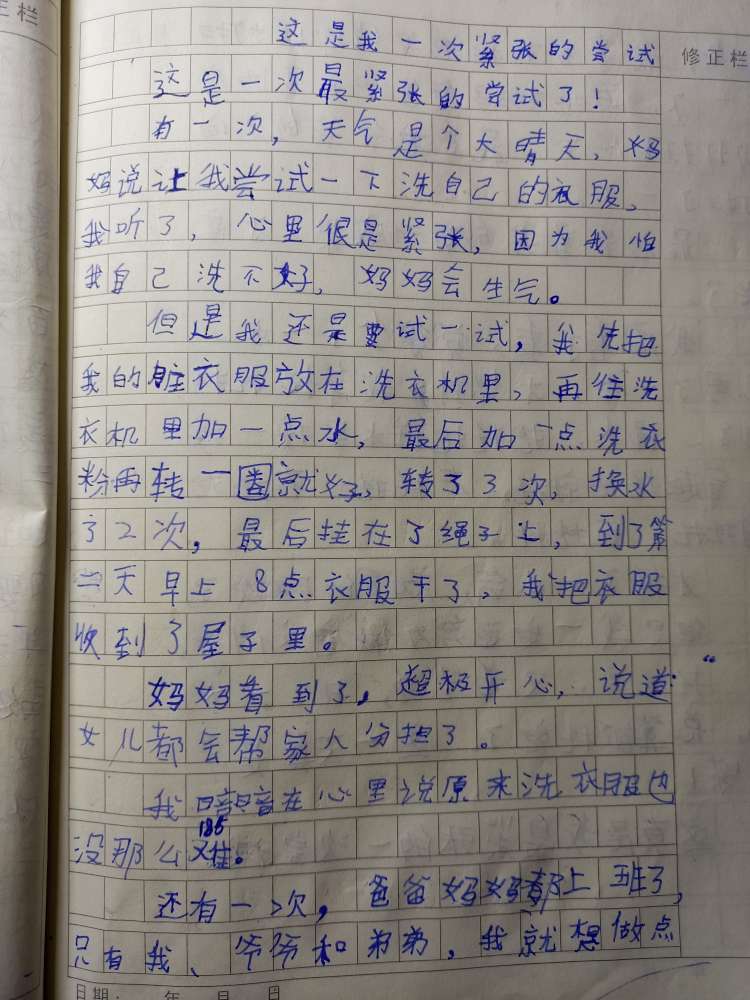 正栏
修正栏
这是我一次紧张的尝试
这是一次最紧张的尝试了！
有一次，天气是个大晴天，妈
妈说让我尝试一下洗自己的衣服，
我听了，心里很是紧张，因为我怕
我自己洗不好，妈妈会生气。
但是我还是要试一试，我先把
我的脏衣服放在洗衣机里，再往洗
衣机里加一点水，最后加一点洗衣
粉再转一圈就好，转了3次，换水
了2次，最后挂在了绳子上，到了第
二天早上8点衣服干了，我把衣服
收到了屋子里。
妈妈看到了，超极开心，说道：“
女儿都会帮家人分担了。
我暗暗在心里说原来洗衣服也
没那么难。
185
还有一次，爸爸妈妈都上班了，
只有我、爷爷和弟弟，我就想做点
日期： 年 月 日